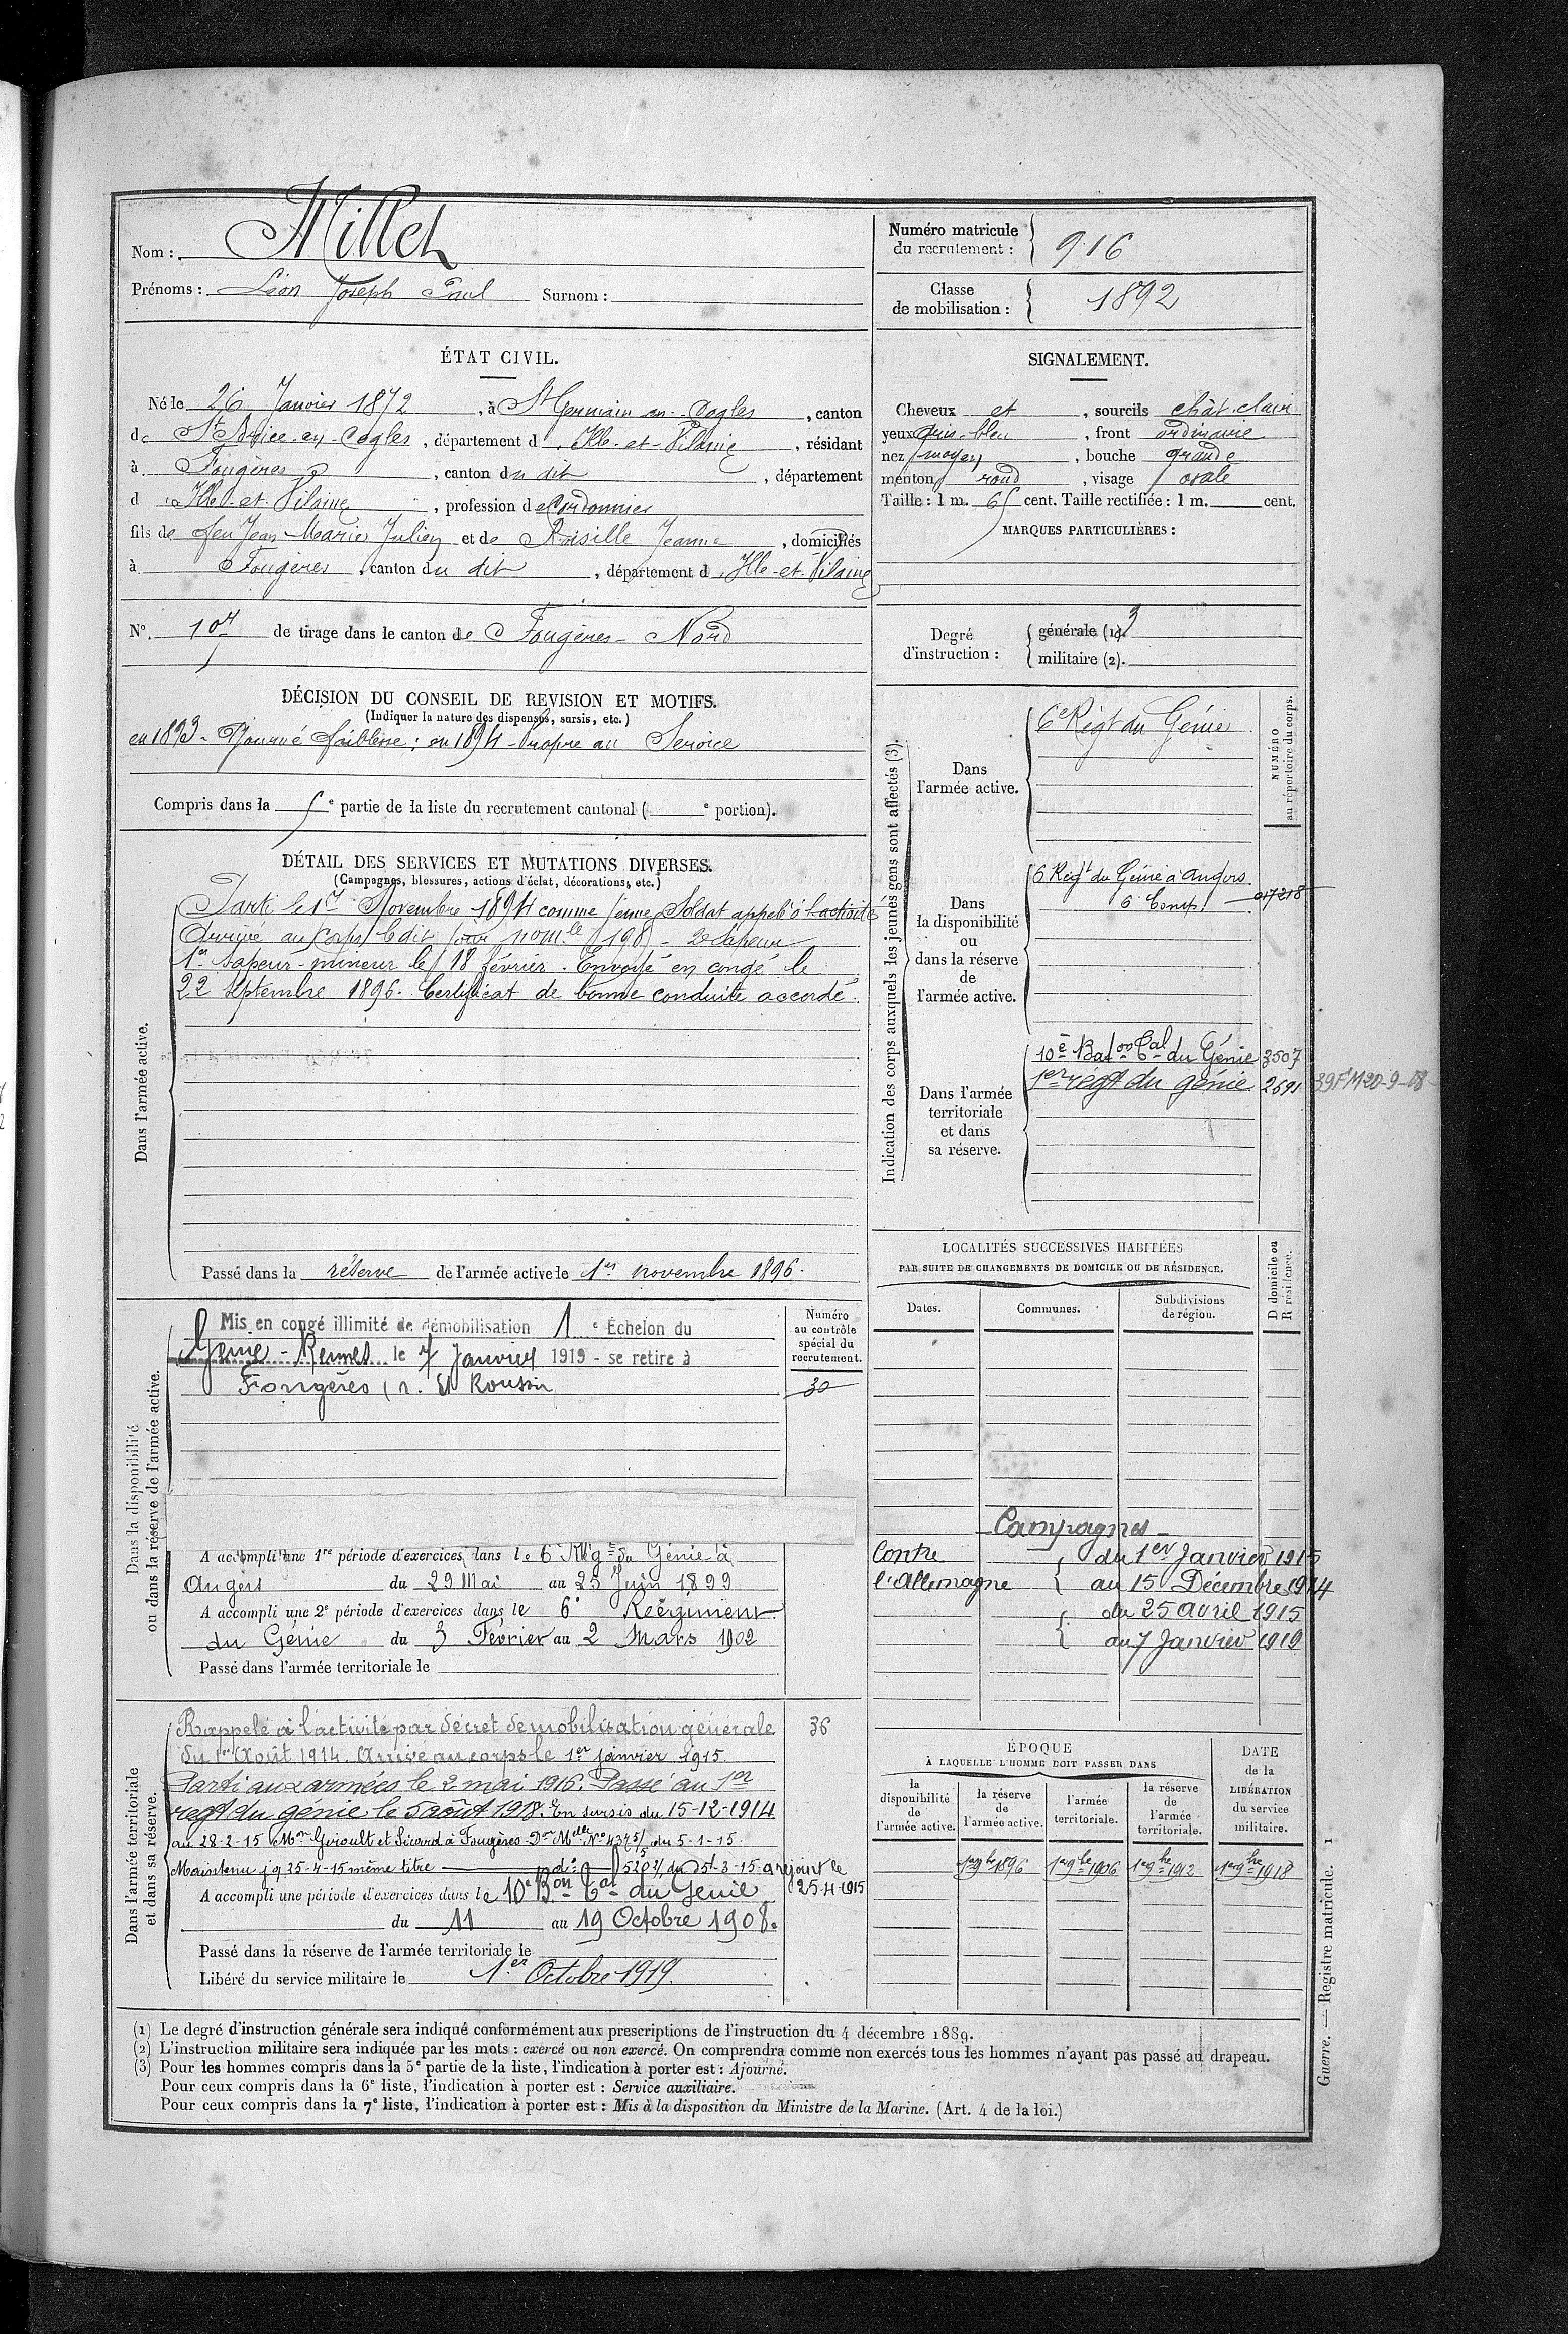 Nom : Millet
Prénoms : Léon Joseph Paul Surnom :
Numéro matricule du recrutement : 916
Classe de mobilisation : 1892
ÉTAT CIVIL.
Né le 26 Janvier 1872, à St Germain en Cogles, canton
de St Brice-en-Cogles, département d Ille-et-Vilaine, résidant
à Fougères, canton du dit, département
d Ille et Vilaine, profession de Cordonnier
fils de feu Jean Marie Julien et de Jeanne, domiciliés
à Fougères, canton du dit, département d Ille-et-Vilaine
N° de tirage dans le canton de Fougères-Nord
DÉCISION DU CONSEIL DE REVISION ET MOTIFS.
(Indiquer la nature des dispenses, sursis, etc.)
en 1893 - Ajourné faiblesse ; en 1894 - Propre au Service
Compris dans la 5e partie de la liste du recrutement cantonal ( e portion).
DÉTAIL DES SERVICES ET MUTATIONS DIVERSES.
(Campagnes, blessures, actions d'éclat, décorations, etc.)
Dans l'armée active.
Parti le 1er Novembre 1894 comme jeune Soldat appelé à l'activité
Arrivé au Corps ledit jour 2e Sapeur
1er sapeur-mineur le 18 février. Envoyé en congé le
22 septembre 1896. Certificat de bonne conduite accordé.
Passé dans la réserve de l'armée active le 1er novembre 1896.
Dans la disponibilité
ou dans la réserve de l'armée active.
Numéro
au contrôle
spécial du
recrutement.
Mis en congé illimité de démobilisation 1e Échelon du
Génie - Rennes le 7 Janvier 1919 - se retire à
Fougères, r.
30
A accompli une 1re période d'exercices dans le 6 Régt du Génie à
Angers du 29 Mai au 25 Juin 1899
A accompli une 2e période d'exercices dans le 6° Régiment
du Génie du 3 Février au 2 Mars 1902
Passé dans l'armée territoriale le
Dans l'armée territoriale
et dans sa réserve.
Rappelé à l'activité par décret de mobilisation générale 36
du 1er Août 1914. Arrivé au corps le 1er janvier 1915.
Parti aux armées le 2 mai 1916. Passé au 1er
regt du génie le 5 août 1918. En sursis du 15-12-1914
au 28-2-15 Mon à Fougères du 5-1-15.
Maintenu jq 25-4-15 même titre do
25-4-1915
A accompli une période d'exercices dans le 10e Bon Tal du Génie
du 11 au 19 Octobre 1908.
Passé dans la réserve de l'armée territoriale le
Libéré du service militaire le 1er Octobre 1919.
SIGNALEMENT.
Cheveux et, sourcils chât. clair
yeux gris-bleu, front ordinaire
nez moyen, bouche grande
menton rond, visage ovale
Taille : 1 m. 65 cent. Taille rectifiée : 1 m. cent.
MARQUES PARTICULIÈRES :
Degré d'instruction : générale (1). 3
militaire (2).
Indication des corps auxquels les jeunes gens sont affectés (3).
NUMÉRO
au répertoire du corps.
Dans
l'armée active.
6e Régt du Génie
Dans
la disponibilité
ou
dans la réserve
de
l'armée active.
6 Régt du Génie à Angers
Dans l'armée
territoriale
et dans
sa réserve.
10e Baton Tal du Génie 3507
1er régt du génie 2691
LOCALITÉS SUCCESSIVES HABITÉES
PAR SUITE DE CHANGEMENTS DE DOMICILE OU DE RÉSIDENCE.
D domicile ou
R résidence.
Dates. Communes. Subdivisions
de région.
Campagnes
Contre du 1er Janvier 1915
l'Allemagne au 15 Décembre 1914
du 25 avril 1915
au 7 Janvier 1919
ÉPOQUE
À LAQUELLE L'HOMME DOIT PASSER DANS
la
disponibilité
de
l'armée active.
la réserve
de
l'armée active.
l'armée
territoriale.
la réserve
de
l'armée
territoriale.
DATE
de la
LIBÉRATION
du service
militaire.
1er 9bre 1896 1er 9bre 1906 1er 9bre 1912 1er 9bre 1918
Guerre. — Registre matricule. 1
(1) Le degré d'instruction générale sera indiqué conformément aux prescriptions de l'instruction du 4 décembre 1889.
(2) L'instruction militaire sera indiquée par les mots : exercé ou non exercé. On comprendra comme non exercés tous les hommes n'ayant pas passé au drapeau.
(3) Pour les hommes compris dans la 5e partie de la liste, l'indication à porter est : Ajourné.
Pour ceux compris dans la 6e liste, l'indication à porter est : Service auxiliaire.
Pour ceux compris dans la 7e liste, l'indication à porter est : Mis à la disposition du Ministre de la Marine. (Art. 4 de la loi.)